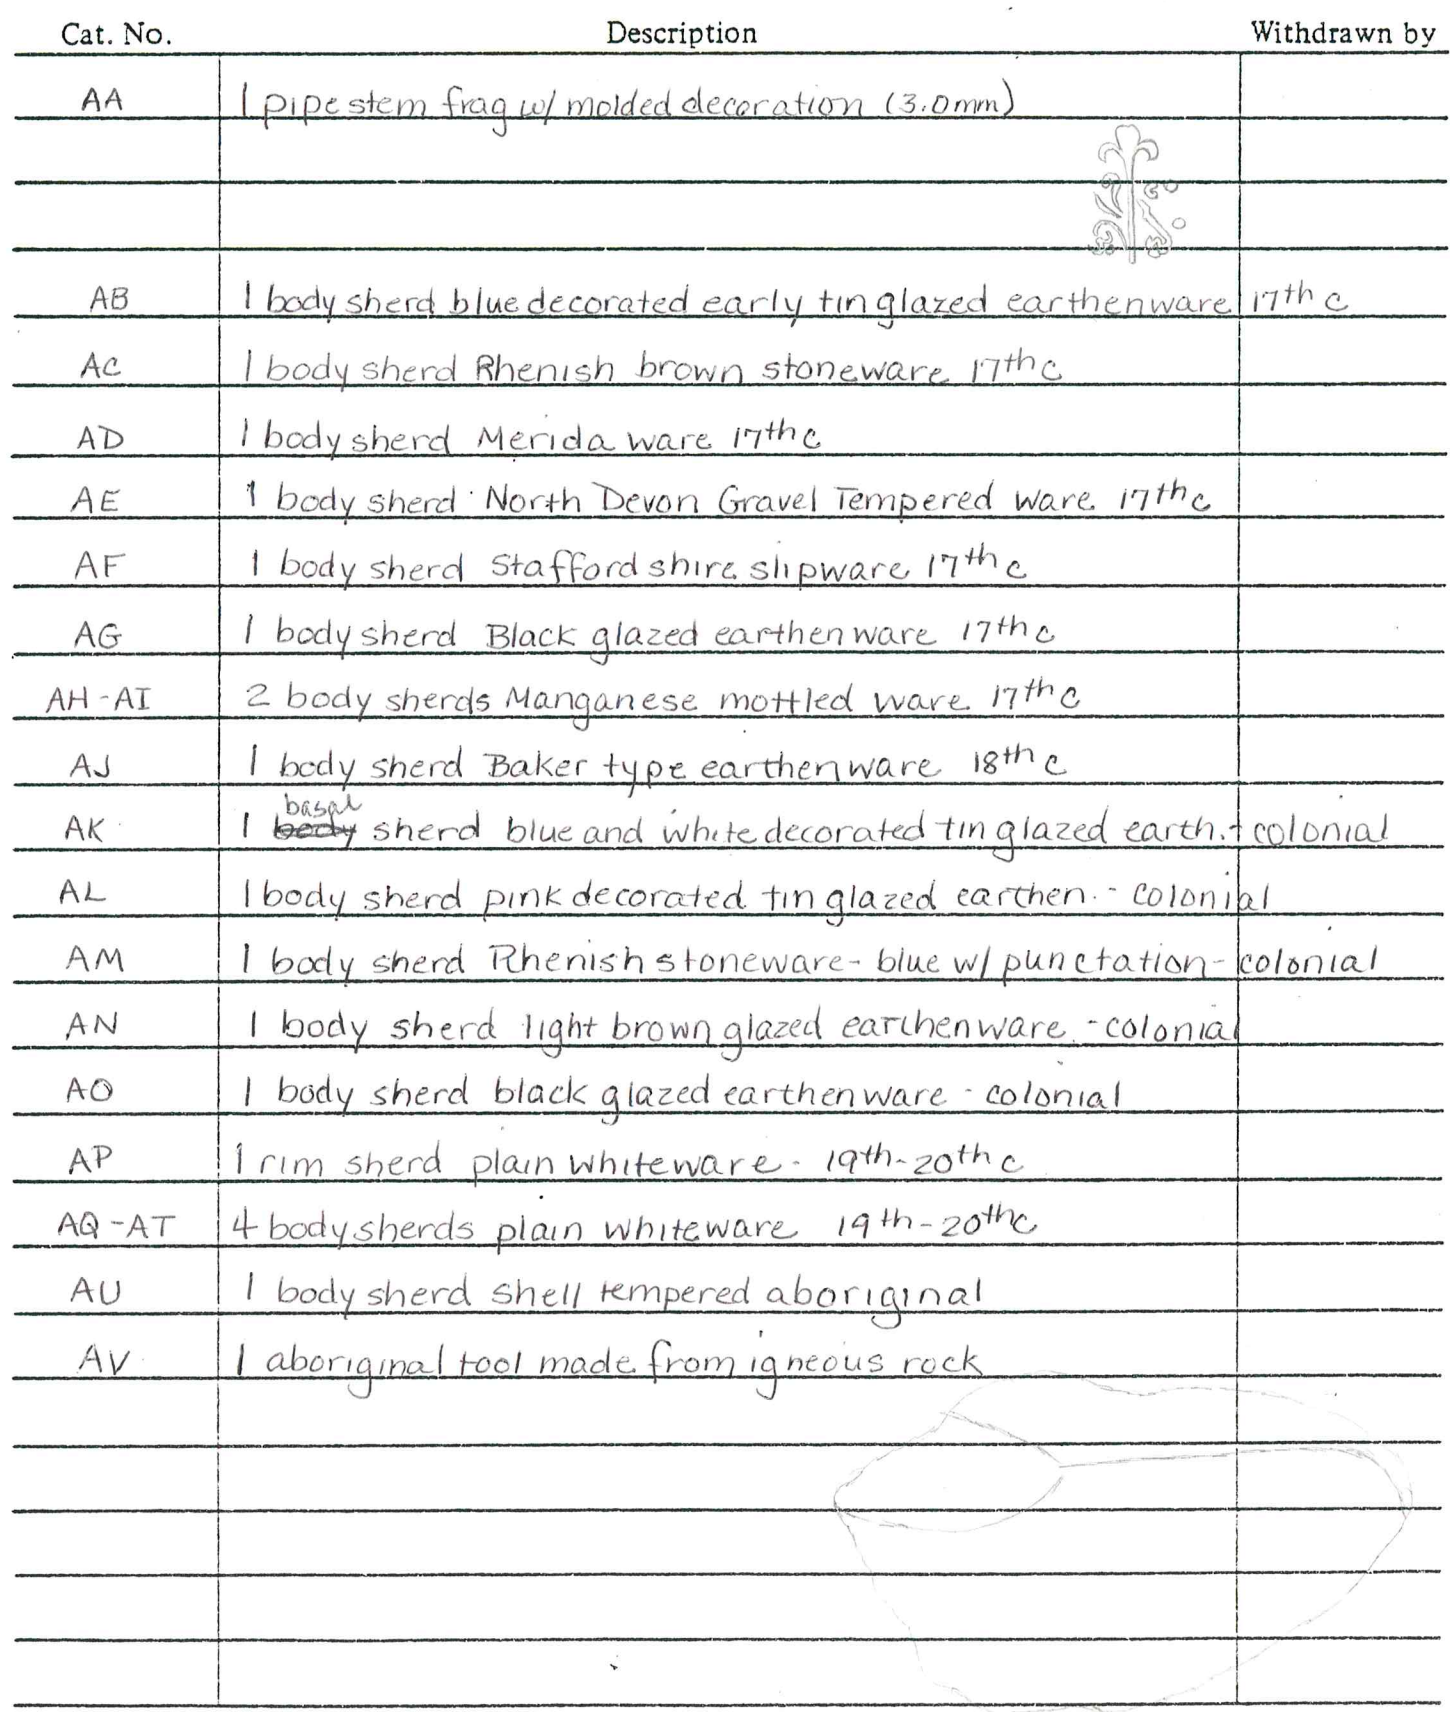 Cat. No. Description Withdrawn by
AA 1 pipe stem frag w/ molded decoration (3.0mm)
AB 1 body sherd blue decorated early tin glazed earthenware 17th c
AC 1 body sherd Rhenish brown stoneware 17th c
AD 1 body sherd Merida ware 17th c
AE 1 body sherd North Devon Gravel Tempered ware 17th c
AF 1 body sherd Staffordshire slipware 17th c
AG 1 body sherd Black glazed earthenware 17th c
AH-AI 2 body sherds Manganese mottled ware 17th c
AJ 1 body sherd Baker type earthenware 18th c
basal
AK 1 body sherd blue and white decorated tin glazed earth. - colonial
AL 1 body sherd pink decorated tin glazed earthen. - colonial
AM 1 body sherd Rhenish stoneware - blue w/ punctation - colonial
AN 1 body sherd light brown glazed earthenware - colonial
AO 1 body sherd black glazed earthenware - colonial
AP 1 rim sherd plain whiteware - 19th-20th c
AQ-AT 4 body sherds plain whiteware 19th-20th c
AU 1 body sherd shell tempered aboriginal
AV 1 aboriginal tool made from igneous rock